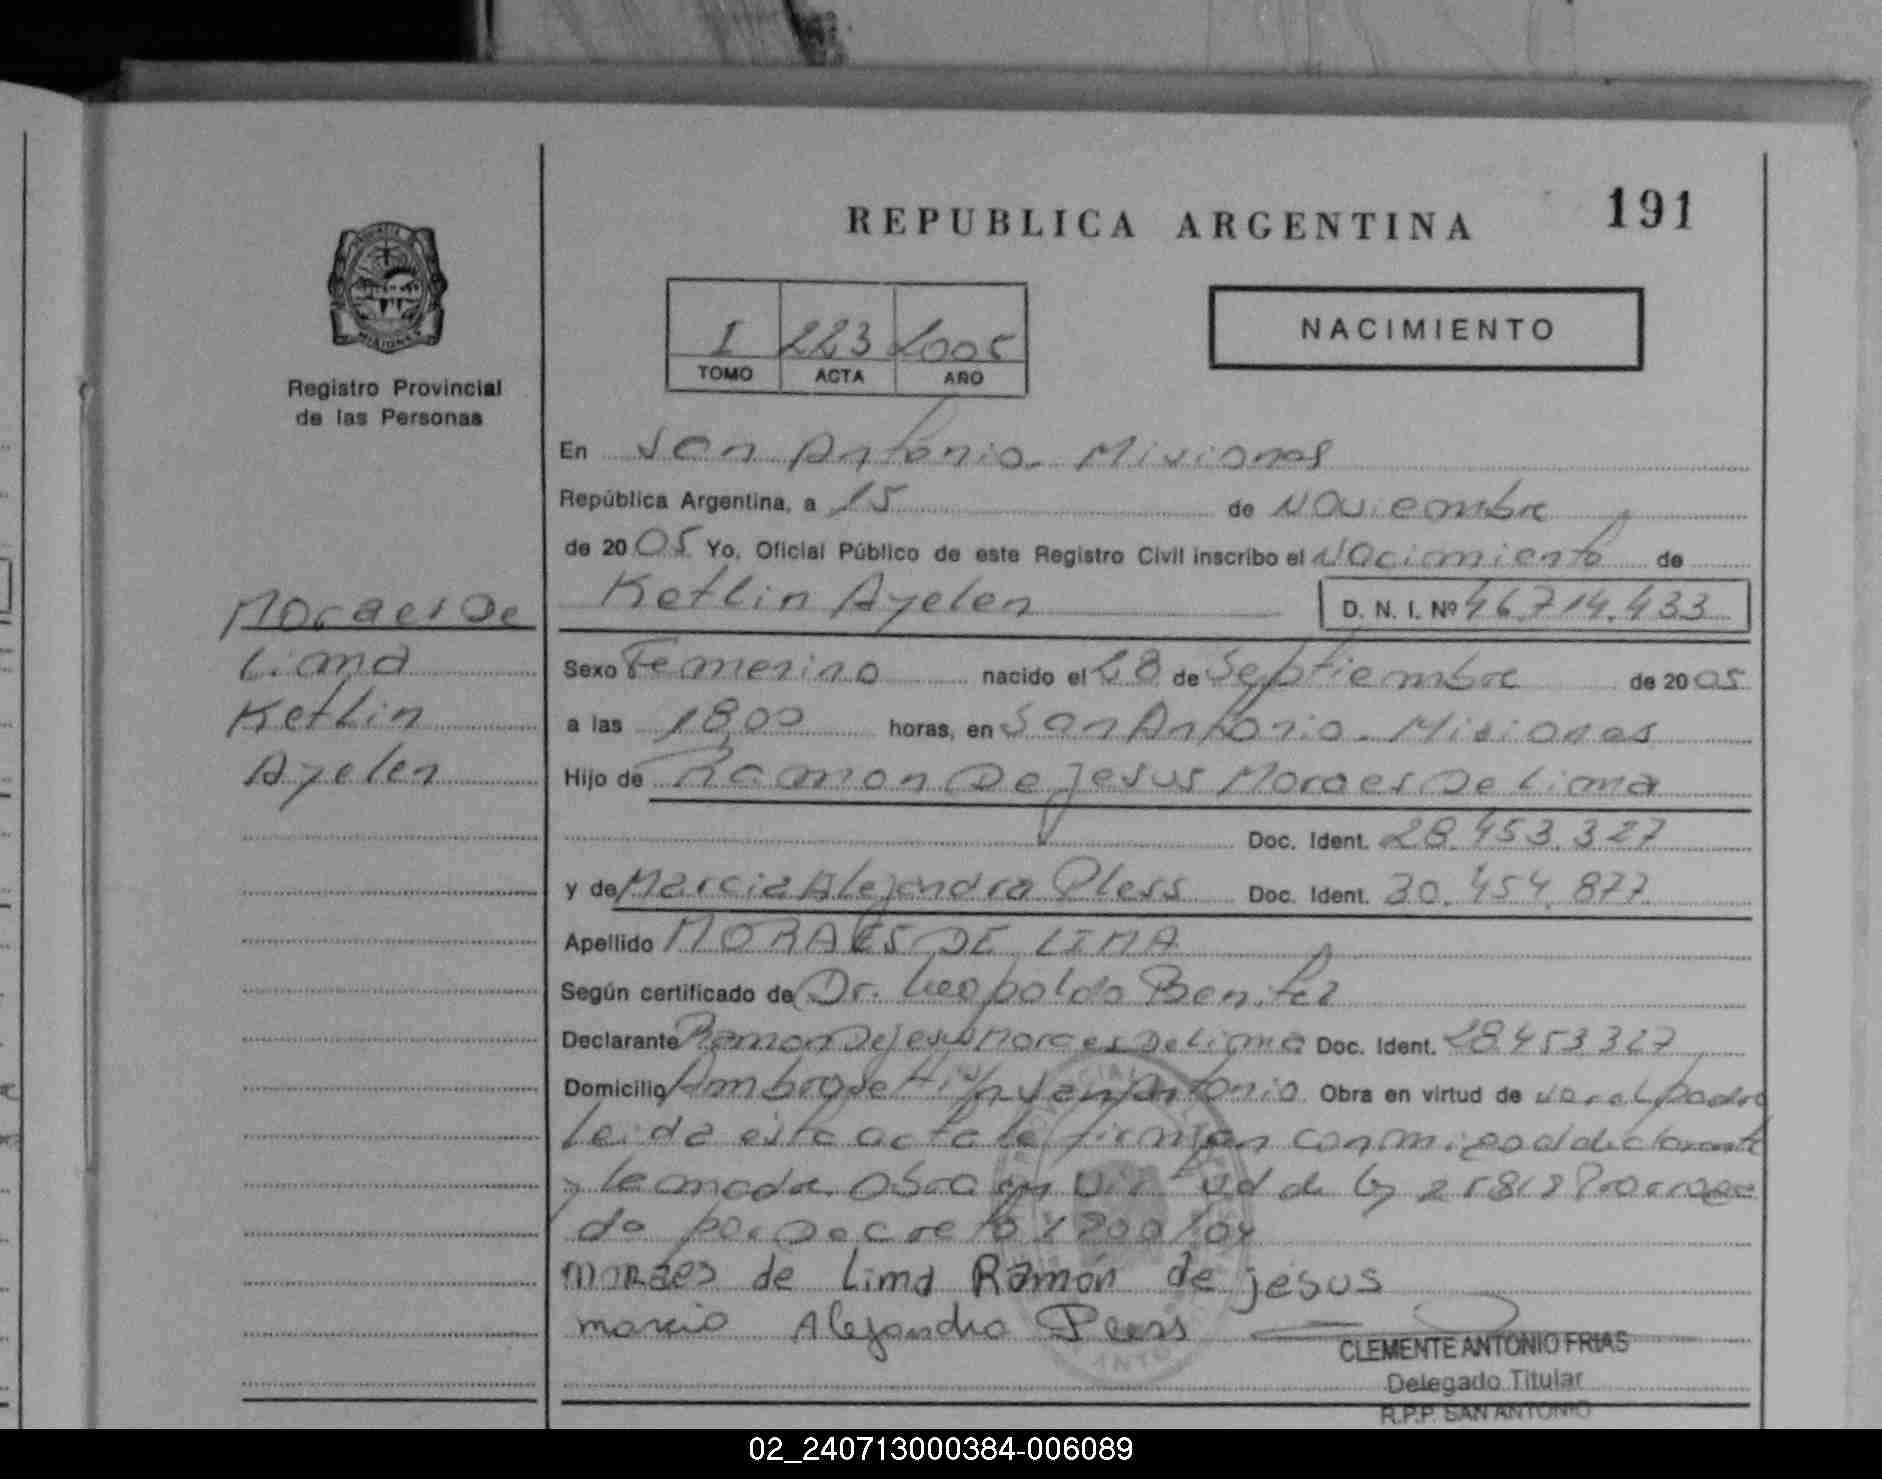 REPUBLICA ARGENTINA
191
I 223 2005
TOMO ACTA AÑO
NACIMIENTO
Registro Provincial
de las Personas
Moraes De
Lima
Ketlin
Ayelen
En San Antonio - Misiones
República Argentina, a 15 de Noviembre
de 2005 Yo, Oficial Público de este Registro Civil inscribo el Nacimiento de
Ketlin Ayelen D. N. I. Nº 46.714.433
Sexo Femenino nacido el 28 de Septiembre de 2005
a las 18,00 horas, en San Antonio - Misiones
Hijo de Ramon De Jesus Moraes De Lima
Doc. Ident. 28.453.327
y de Marcia Alejandra Pless Doc. Ident. 30.454.877
Apellido MORAES DE LIMA
Según certificado de Dr. Leopoldo Benitez
Declarante Ramon De Jesus Moraes De Lima Doc. Ident. 28.453327
Domicilio San Antonio Obra en virtud de ser el padre
Leida esta acta la firman conmigo el declarante
y la madre. Obra en virtud de ley 25819
do por Decreto
moraes de Lima Ramón de jesus
marcia Alejandra Pless
CLEMENTE ANTONIO FRIAS
Delegado Titular
R.P.P. SAN ANTONIO
02_240713000384-006089